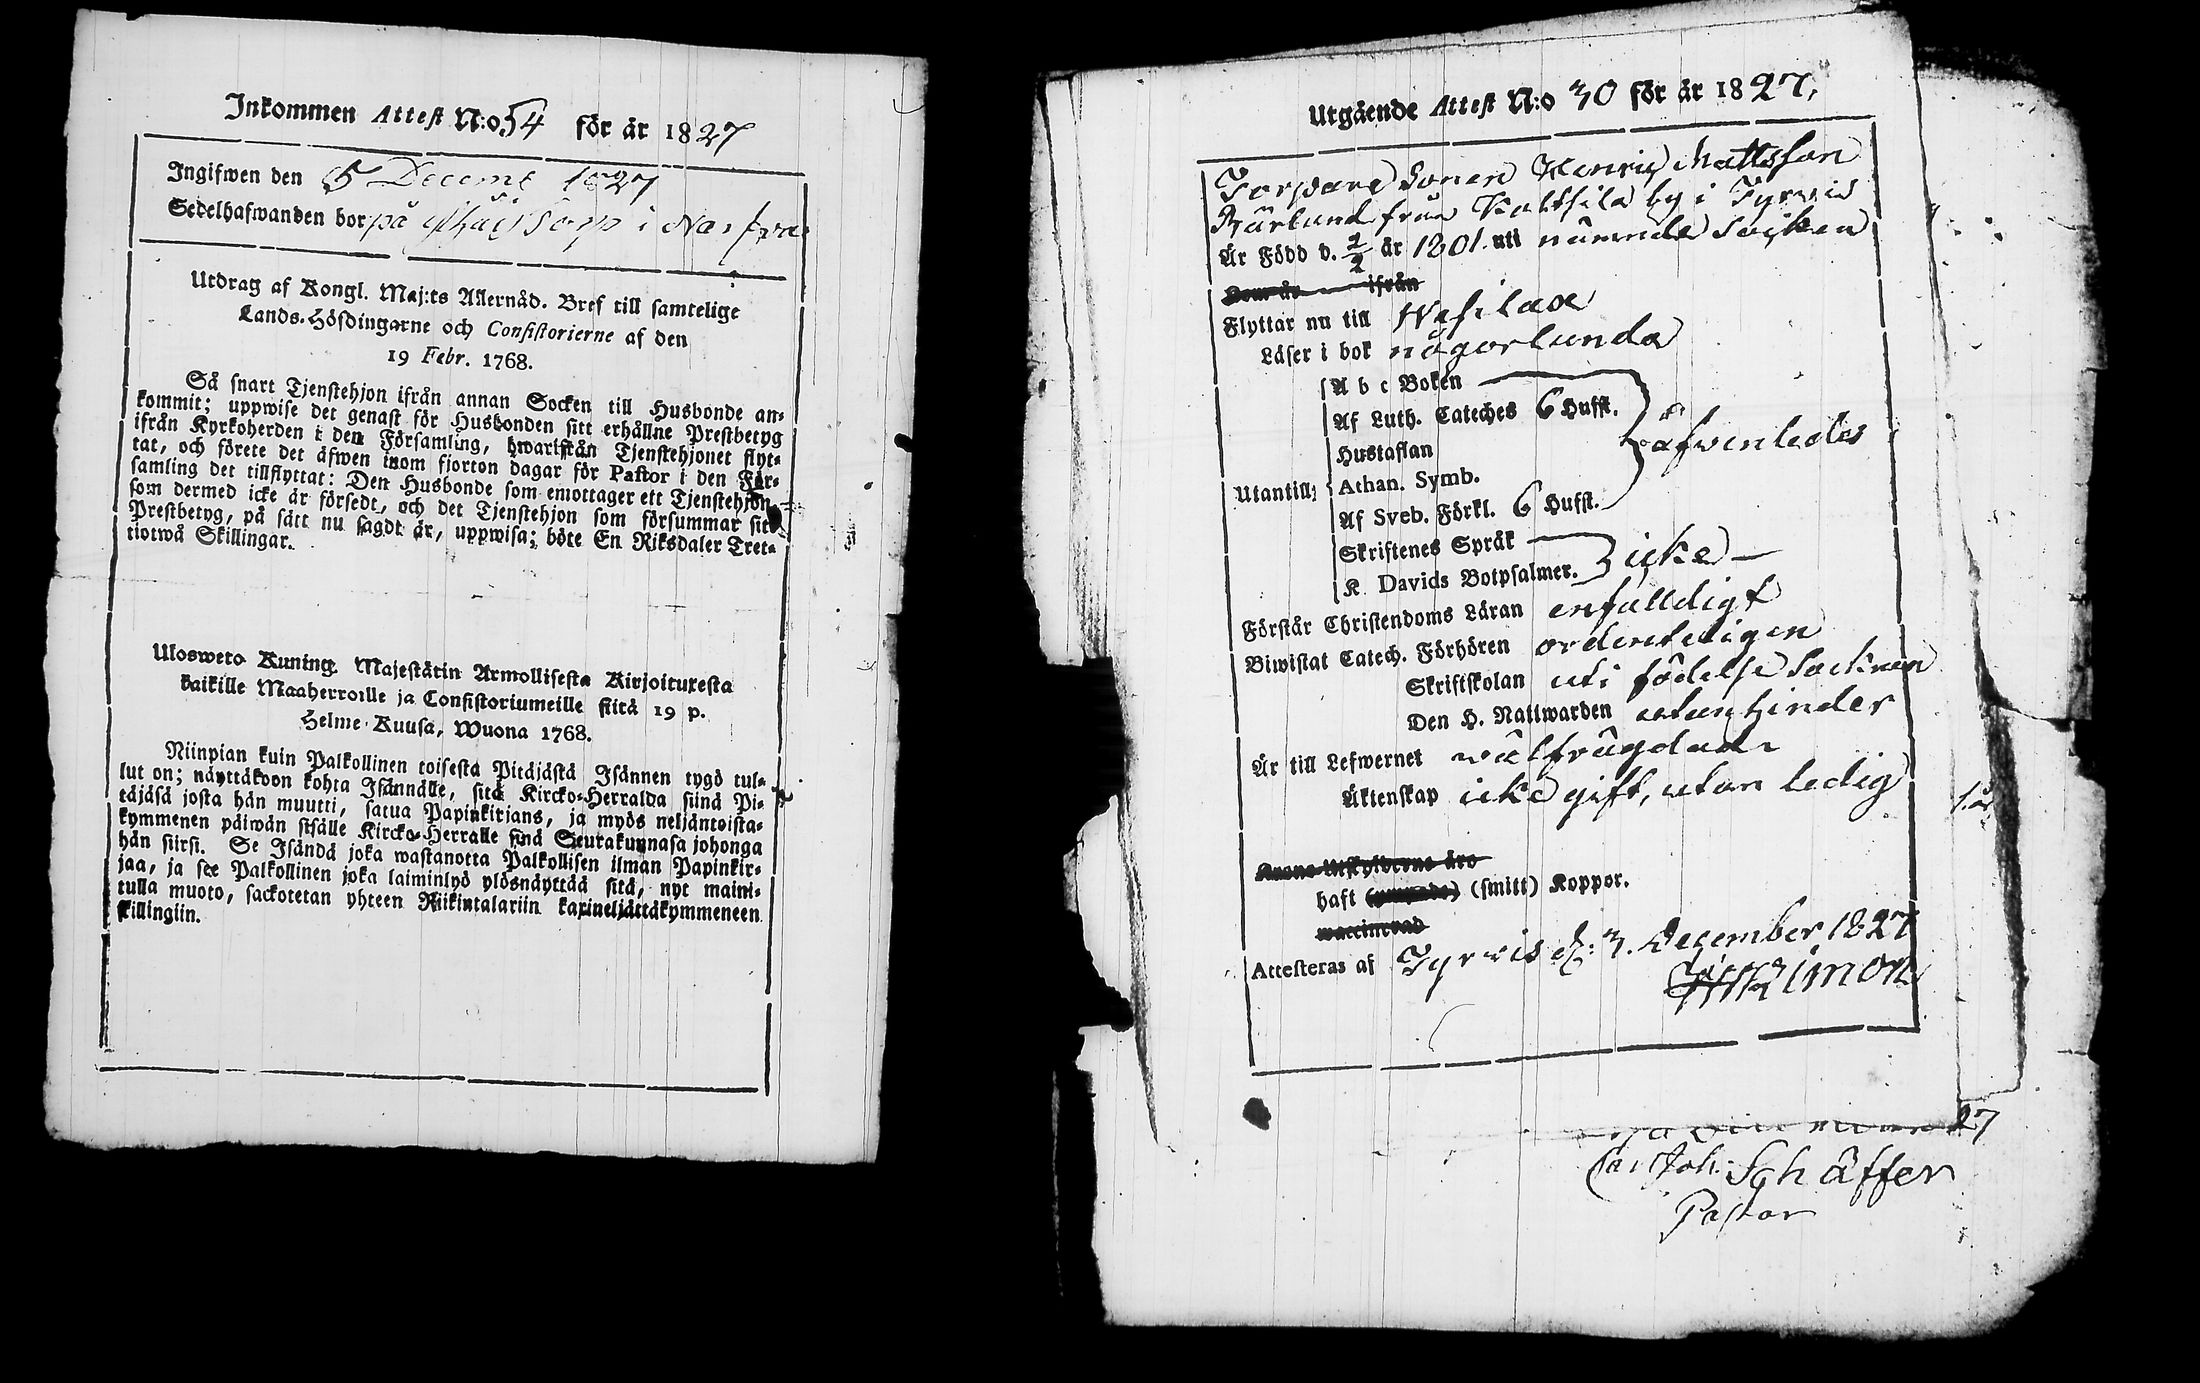 Inkommen Attest N:o 54 för år 1827
Ingifwen den 5 Decemb 1827
Sedelhafwanden bor på torp i Narfva
Utdrag af Kongl. Maj:ts Allernåd. Bref till samtelige
Lands-Höfdingarne och Consistorierne af den
19 Febr. 1768.
Så snart Tjenstehjon ifrån annan Socken till Husbonde an-
kommit; uppwise det genast för Husbonden sitt erhållne Prestbetyg
ifrån Kyrkoherden i den Församling, hwarifrån Tjenstehjonet flyt-
tat, och förete det äfwen inom fjorton dagar för Pastor i den För-
samling det tillflyttat: Den Husbonde som emottager ett Tjenstehjon,
som dermed icke är försedt, och det Tjenstehjon som försummar sitt
Prestbetyg, på sätt nu sagdt är, uppwisa; böte En Riksdaler Tret-
tiotwå Skillingar.
Ulosweto Kuning. Majestätin Armollisesta Kirjoituxesta
kaikille Maaherroille ja Consistoriumeille siitä 19 p.
Helme-Kuusa, Wuona 1768.
Niinpian kuin Palkollinen toisesta Pitäjästä Isännen tygö tul-
lut on; näyttäkoon kohta Isännälle, sitä Kircko-Herralda siinä Pi-
täjäsä josta hän muutti, satua Papinkirjans, ja myös neljäntoista-
kymmenen päiwän sisälle Kircko-Herralle sinä Seurakunnasa johonga
hän siirsi. Se Isändä joka wastanotta Palkollisen ilman Papinkir-
jaa, ja see Palkollinen joka laiminlyö ylösnäyttää sitä, nyt maini-
tulla muoto, sackotetan yhteen Riikintalariin kaxineljättäkymmeneen
skillingiin.
Utgående Attest N:o 30 för år 1827.
Torpare Sonen Henric Mattsson
Bärlund från Kaltsila by i Tyrvis
Är Född d. 2/2 år 1801. uti nämnde Socken
Kom år ifrån
Flyttar nu till Wesilax
Läser i bok någorlunda
A b c Boken
Af Luth. Cateches 6 Hufst.
Hustaflan
äfvenledes
Utantill;
Athan. Symb.
Af Sveb. Förkl. 6 Hufst.
Skriftenes Språk
icke
K Davids Botpsalmer.
Förstår Christendoms Läran enfalldigt
Biwistat Catech. Förhören ordenteligen
Skriftskolan uti födelse Socknen
Den H. Nattwarden utan hinder
Är till Lefwernet wälfrägdad
Äktenskap icke gift, utan ledig
Krono Utskylderne äro
haft (ympade) (smitt) Koppor.
waccinerad
Attesteras af Tyrvis d. 3. December 1827
27
Carl Joh. Schäffer
Pastor